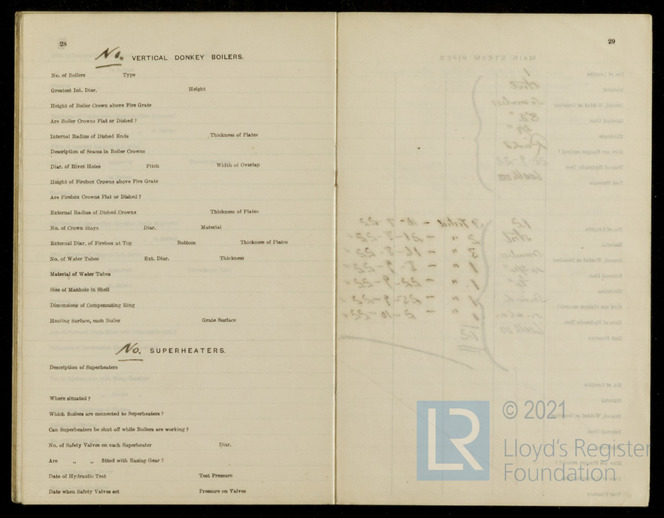 28
No. VERTICAL DONKEY BOILERS.
No. of Boilers Type
Greatest Int. Diar. Height
Height of Boiler Crown above Fire Grate
Are Boiler Crowns Flat or Dished ?
Internal Radius of Dished Ends Thickness of Plates
Description of Seams in Boiler Crowns
Diar. of Rivet Holes Pitch Width of Overlap
Height of Firebox Crowns above Fire Grate
Are Firebox Crowns Flat or Dished ?
External Radius of Dished Crowns Thickness of Plates
No. of Crown Stays Diar. Material
External Diar. of Firebox at Top Bottom Thickness of Plates
No. of Water Tubes Ext. Diar. Thickness
Material of Water Tubes
Size of Manhole in Shell
Dimensions of Compensating Ring
Heating Surface, each Boiler Grate Surface
No. SUPERHEATERS.
Description of Superheaters
Where situated ?
Which Boilers are connected to Superheaters ?
Can Superheaters be shut off while Boilers are working ?
No. of Safety Valves on each Superheater Diar.
Are „ „ fitted with Easing Gear ?
Date of Hydraulic Test Test Pressure
Date when Safety Valves set Pressure on Valves
29
LR
© 2021
Lloyd's Register
Foundation